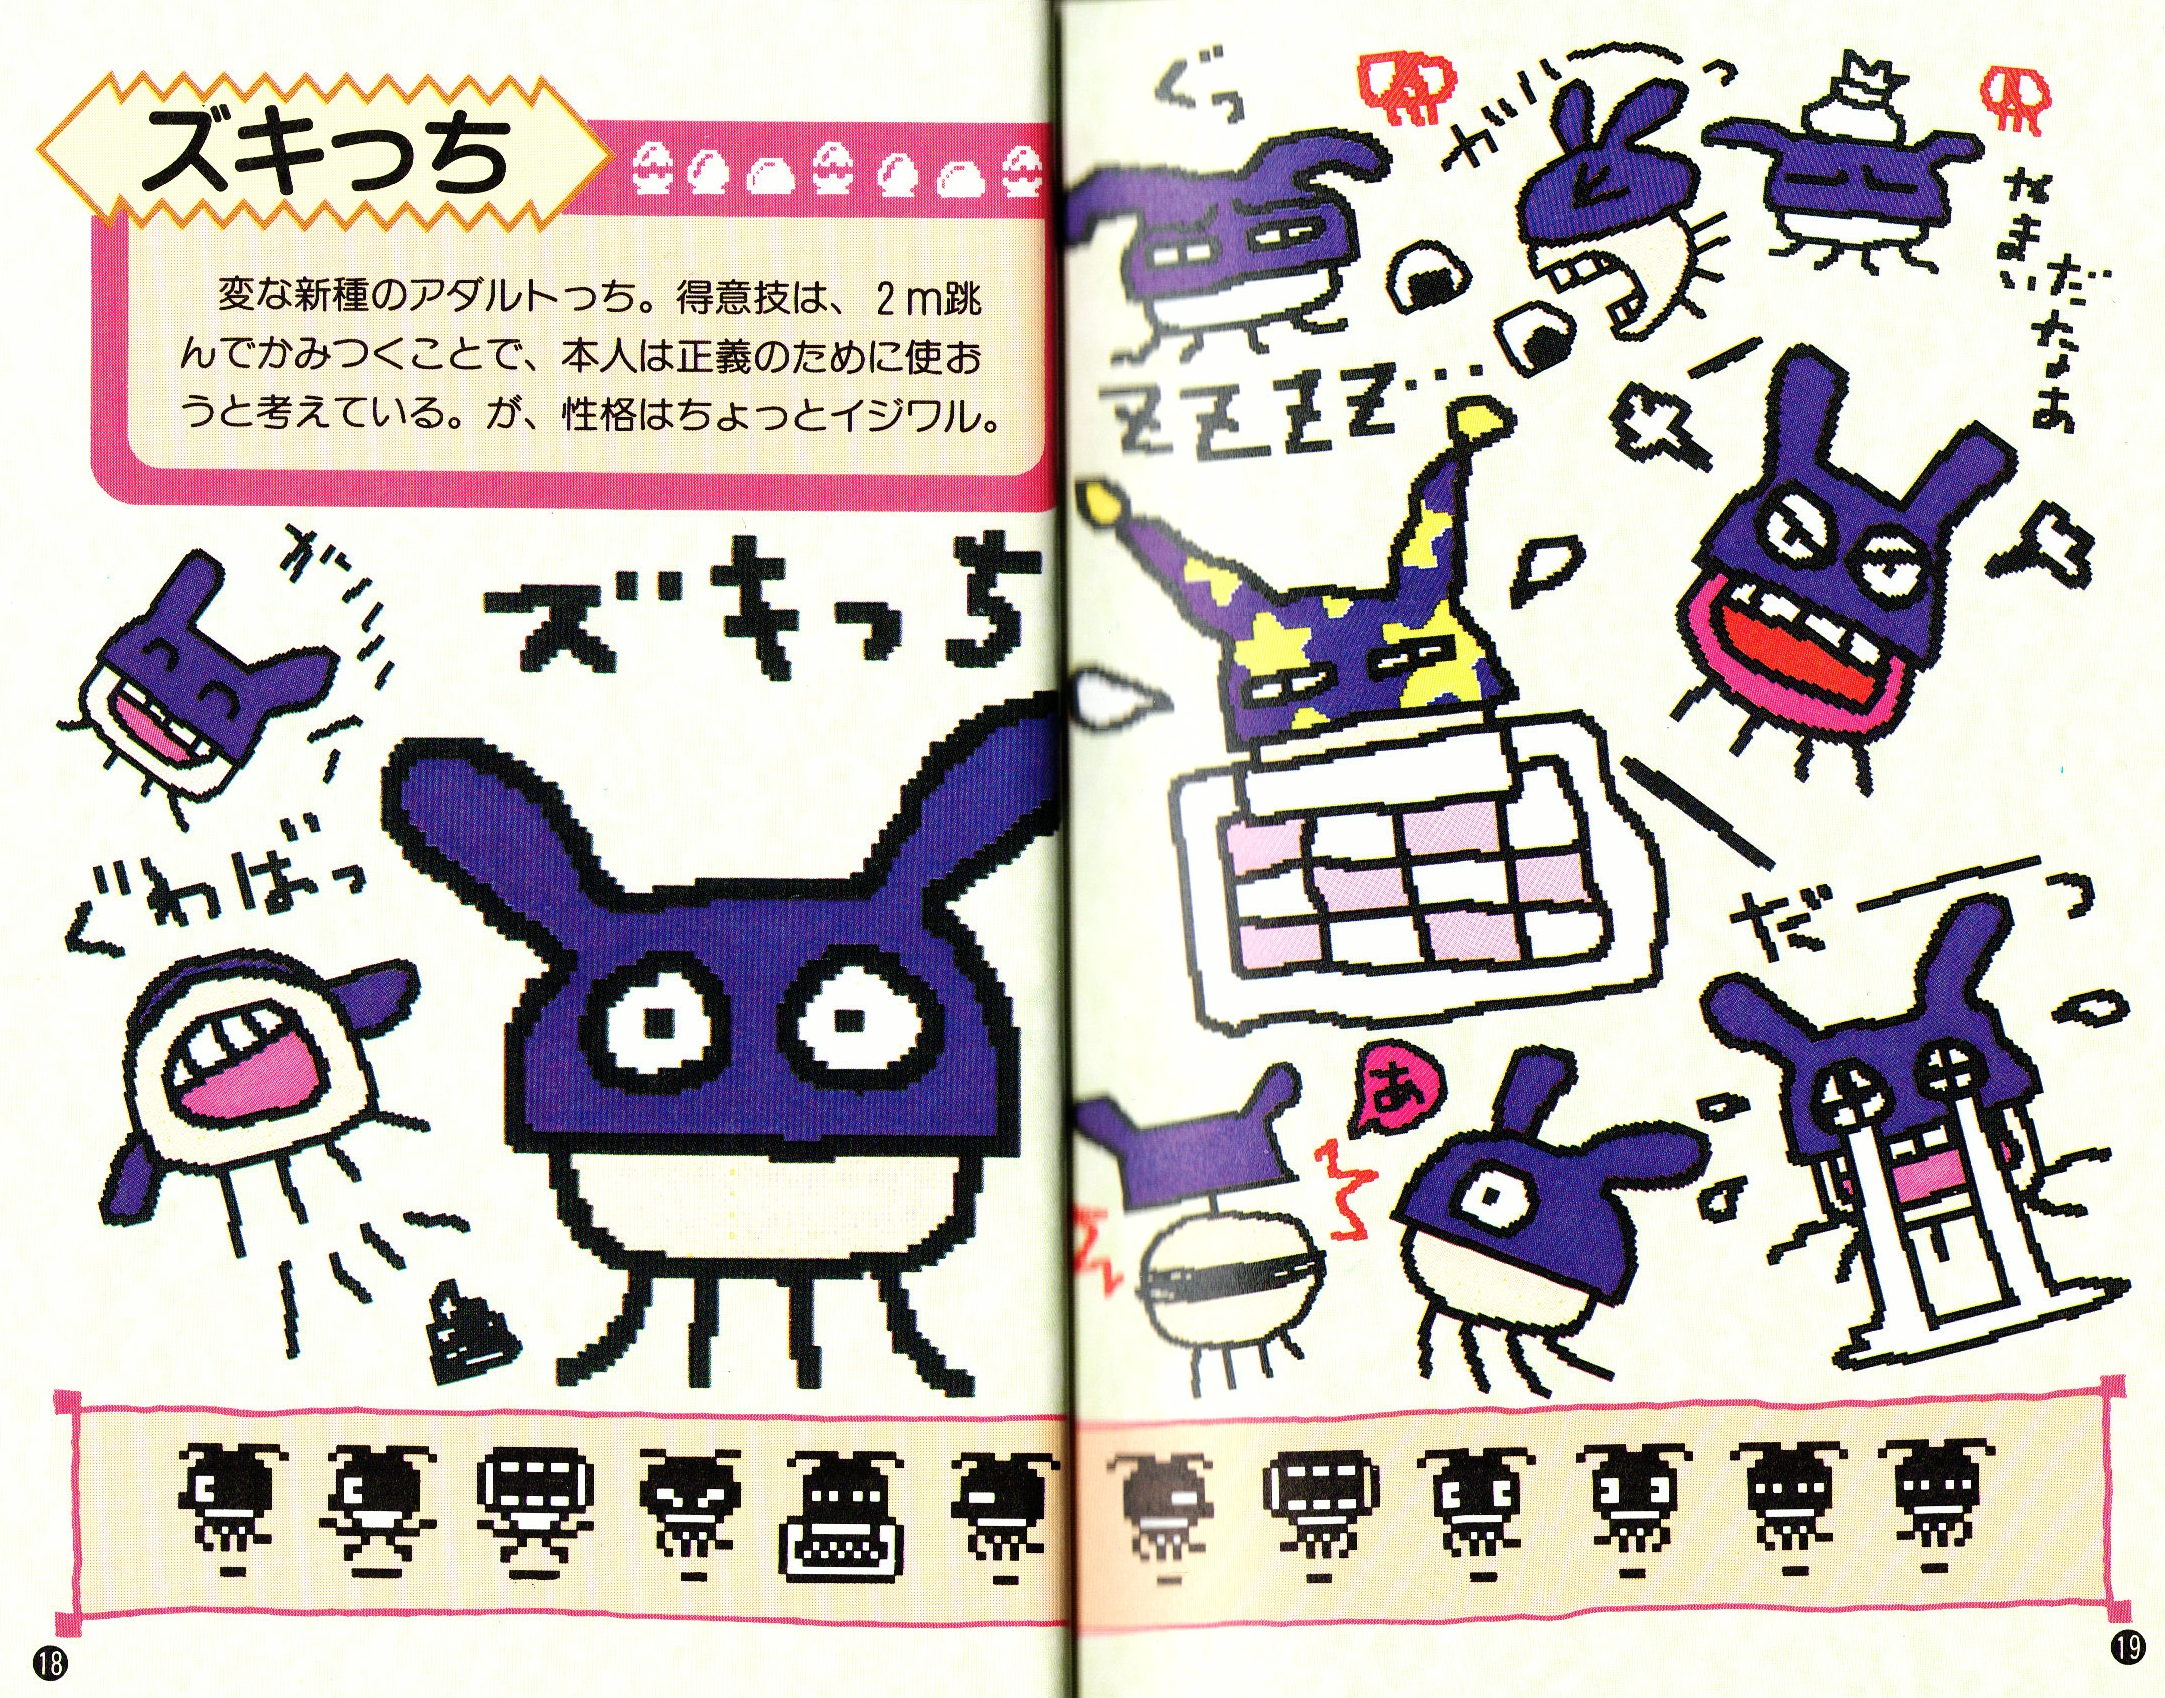 ズキっち
変な新種のアダルトっち。得意技は、2m跳
んでかみつくことで、本人は正義のために使お
うと考えている。が、性格はちょっとイジワル。
ズキっち
ぐわばっ
18
ぐっ
ガバーっ
なまいだなあ
ZZZZ…
だーっ
あ
19